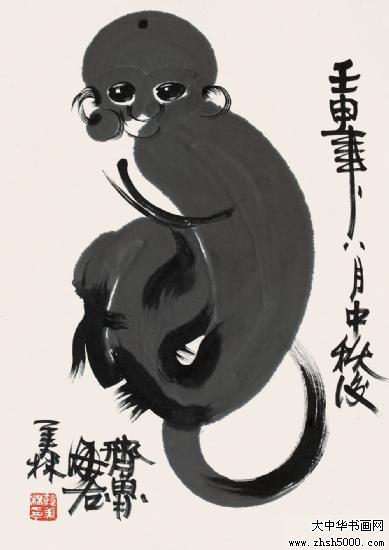 壬申年八月中秋後
齊魯
海右
美林
大中华书画网
www.zhsh5000.com